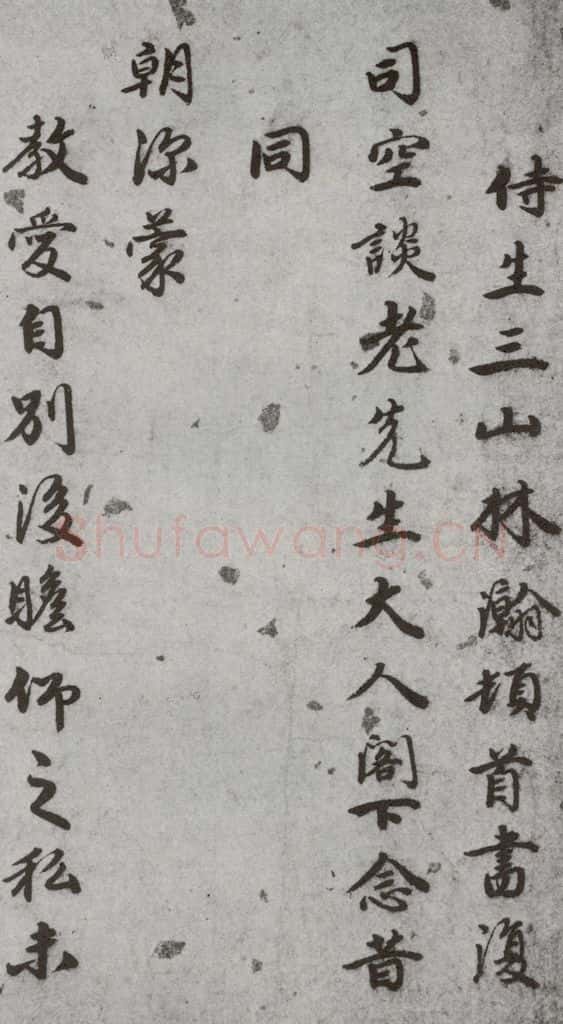 侍生三山林瀚頓首書復
司空談老先生大人閣下念昔
同
朝深蒙
教愛自別後瞻仰之私未
Shufawang.CN